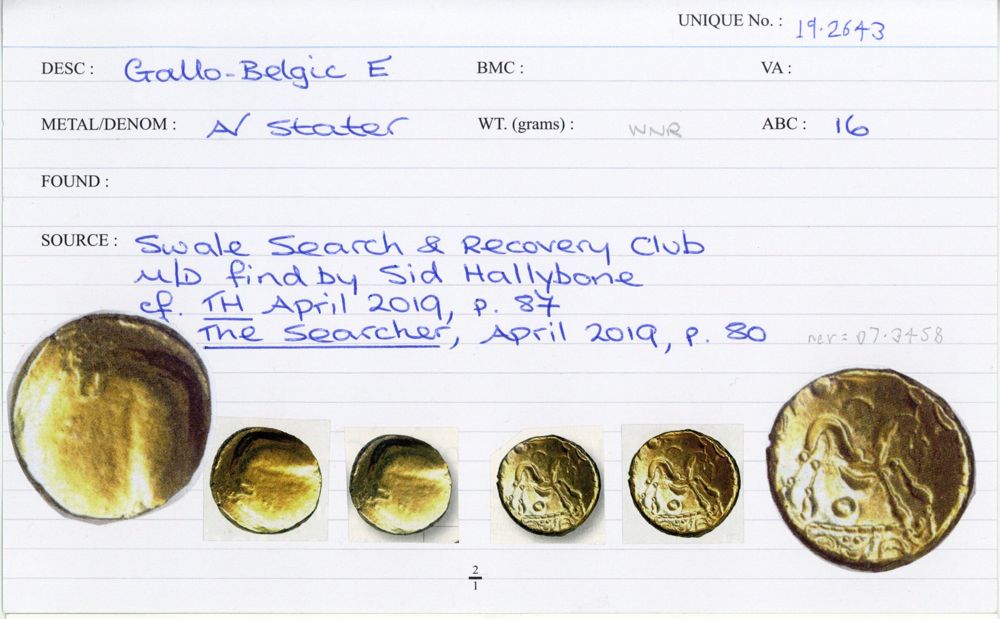 UNIQUE No. : 19.2643
DESC : Gallo-Belgic E BMC : VA :
METAL/DENOM : A/ Stater WT. (grams) : WNR ABC : 16
FOUND :
SOURCE : Swale Search & Recovery Club
M/D find by Sid Hallybone
cf. TH April 2019, p. 87
The Searcher, April 2019, p. 80
2
1